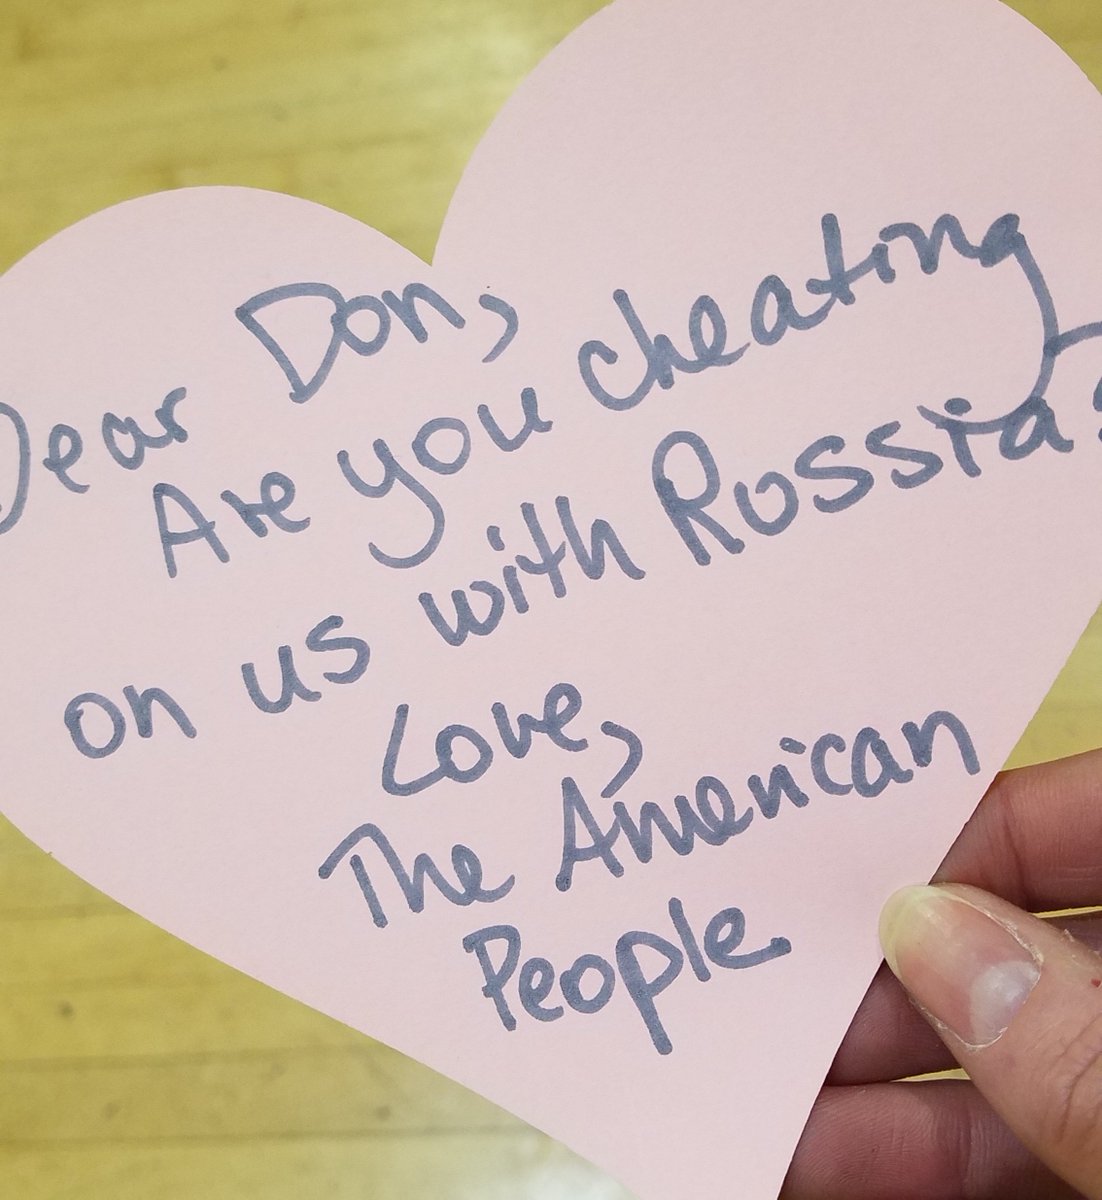 Dear Don,
Are you cheating
on us with Russia?
Love,
The American
People